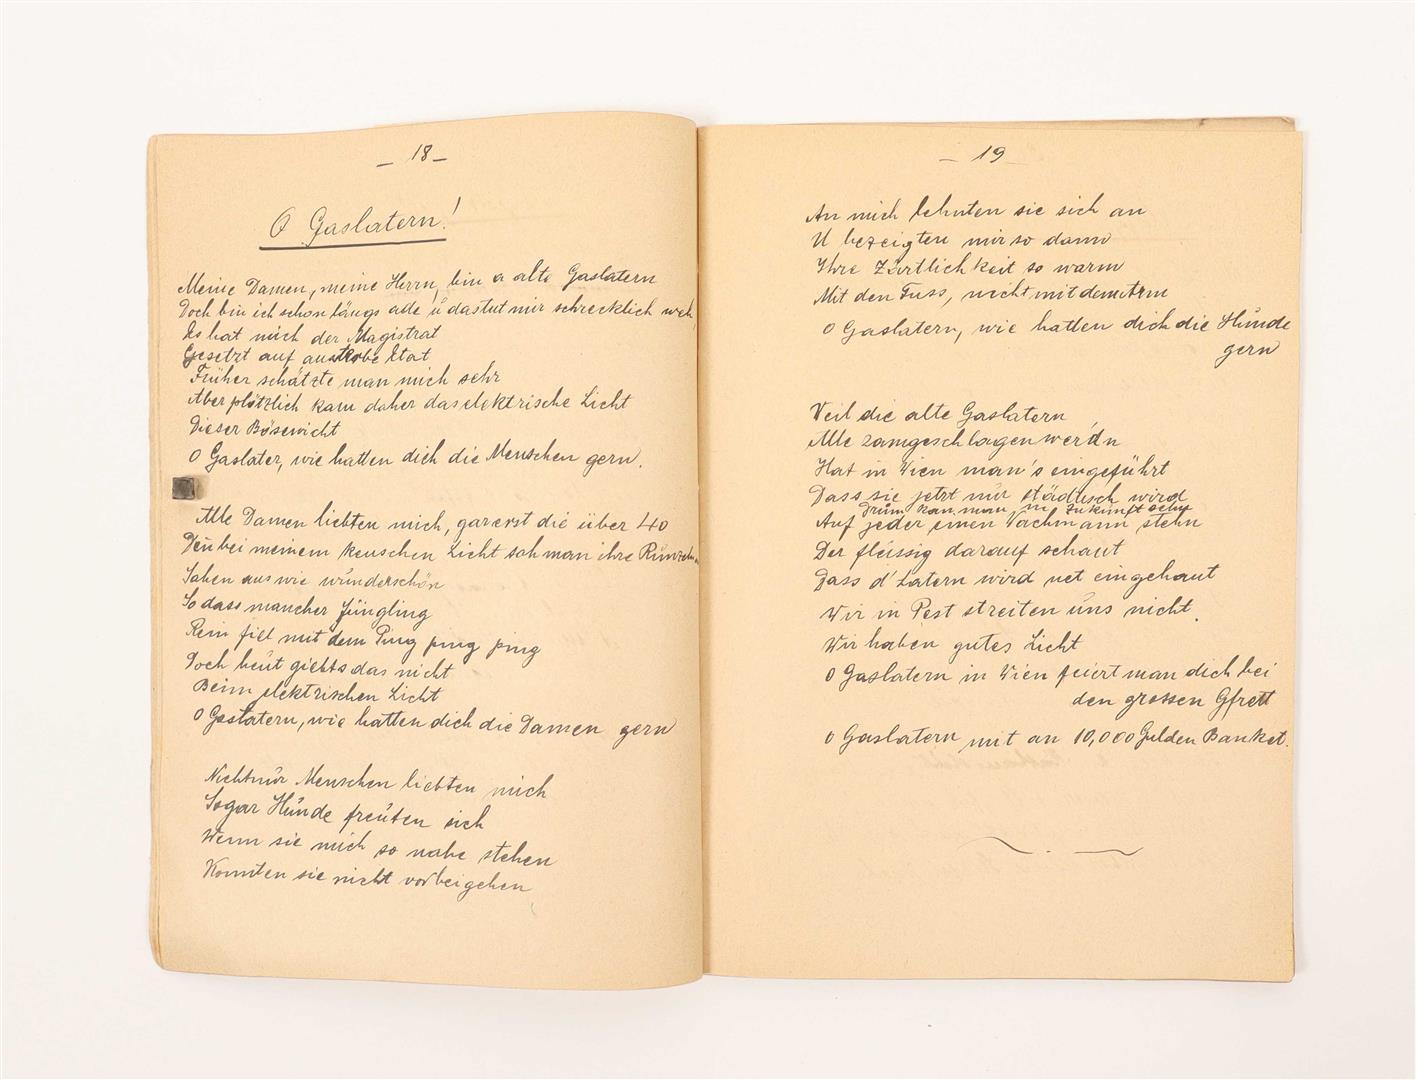 – 18 –
O Gaslatern!
Meine Damen, meine Herrn, bin a alte Gaslatern
Doch bin ich schon längs ade ŭ das tut mir schrecklich weh,
Es hat mich der Magistrat
Gesetzt auf aussterbe Etat
Früher schätzte man mich sehr
Aber plötzlich kam daher das elektrische Licht
Dieser Bösewicht
O Gaslater, wie hatten dich die Menschen gern.
Alle Damen liebten mich, gar erst die über 40
Den bei meinem keuschen Licht sah man ihre Runzeln
Sahen aus wie wünderschön
So dass mancher Jüngling
Rein fiel mit dem Ping ping ping
Doch heŭt giebts das nicht
Beim elektrischen Licht
O Gaslatern, wie hatten dich die Damen gern
Nicht nŭr Menschen liebten mich
Sogar Hŭnde freŭten sich
Wenn sie mich so nahe stehen
Konnten sie nicht vorbeigehen
– 19 –
An mich lehnten sie sich an
U bezeigten mir so dann
Ihre Zärtlichkeit so warm
Mit den Fuss, nicht mit dem Arm
O Gaslatern, wie hatten dich die Hŭnde
gern
Weil die alte Gaslatern
Alle zamgeschlagen wer'dn
Hat in Wien man's eingeführt
Dass sie jetzt nŭr städtisch wird
Drŭm kan man in Zukunft sehn
Auf jeder einen Wachmann stehn
Der fleissig darauf schaut
Dass d' Latern wird net eingehaut
Wir in Pest streiten ŭns nicht.
Wir haben gutes Licht
O Gaslatern in Wien feiert man dich bei
den grossen Gfrett
O Gaslatern mit an 10,000 Gulden Banket.